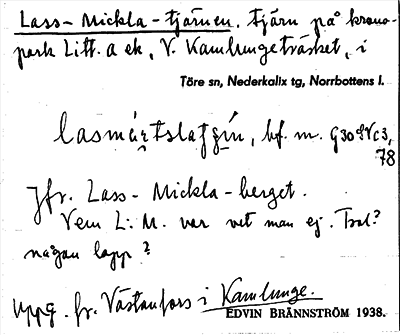 Lass-Mickla-tjärnen, tjärn på krono-
park Litt. a ek, V. Kamlungeträsket, i
Töre sn, Nederkalix tg, Norrbottens l.
bf. m.
78
Jfr. Lass-Mickla-berget.
Vem L. M. var vet man ej. Trol.?
någon lapp?
Uppg. fr. Västanfors i Kamlunge.
EDVIN BRÄNNSTRÖM 1938.